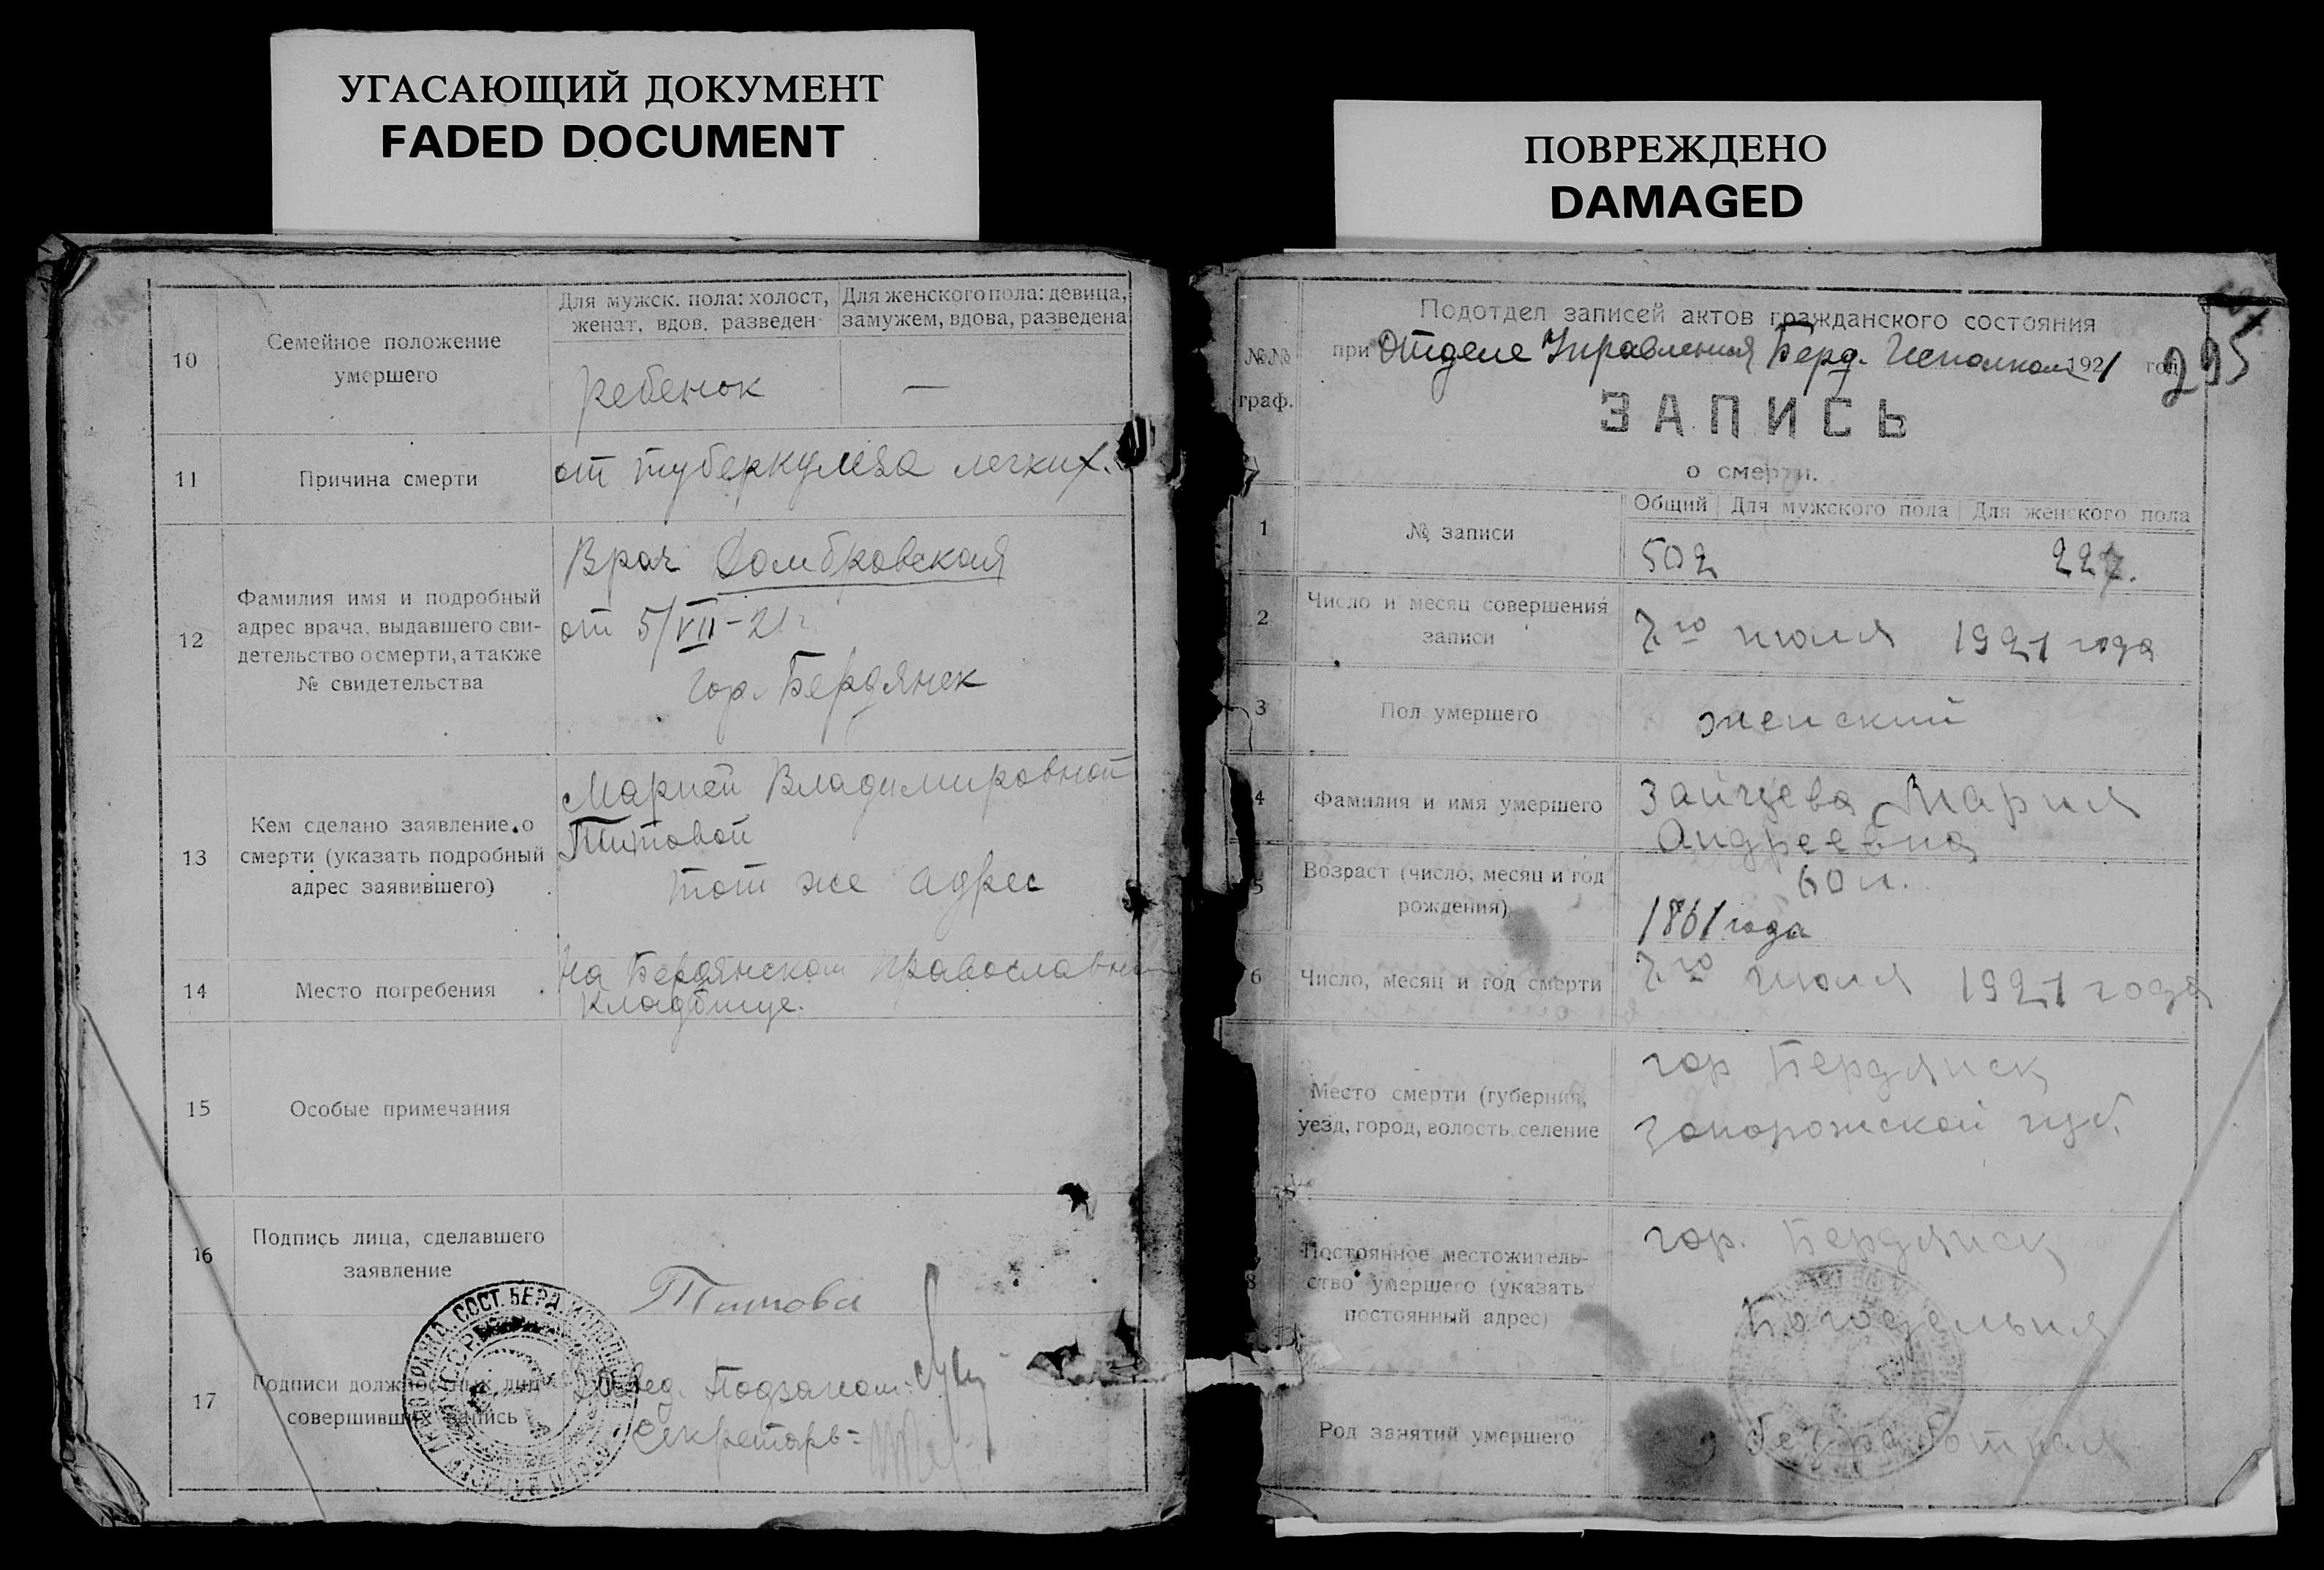 УГАСАЮЩИЙ ДОКУМЕНТ
FADED DOCUMENT
10
Семейное положение
умершего
Для мужск. пола: холост,
женат, вдов. разведен
Для женского пола: девица,
замужем, вдова, разведена
ребенок
—
11
Причина смерти
от туберкулеза легких.
12
Фамилия имя и подробный
адрес врача, выдавшего сви-
детельство о смерти, а также
№ свидетельства
Врач Домбровская
от 5/VII-21г
гор. Бердянск
13
Кем сделано заявление о
смерти (указать подробный
адрес заявившего)
Марией Владимировной
Титовой
тот же адрес
14
Место погребения
на Бердянском православном
кладбище.
15
Особые примечания
16
Подпись лица, сделавшего
заявление
Титова
17
Подписи должностных лиц
совершивших запись
Секретарь-
ПОВРЕЖДЕНО
DAMAGED
№№
граф.
Подотдел записей актов гражданского состояния
при Отделе Управления Берд. Исполком 1921 год
295
ЗАПИСЬ
о смерти.
1
№ записи
Общий
Для мужского пола
Для женского пола
502
227.
2
Число и месяц совершения
записи
7го июля 1921 года
3
Пол умершего
женский
4
Фамилия и имя умершего
Зайцева Мария
Андреевна
5
Возраст (число, месяц и год
рождения)
60 л.
1861 года
6
Число, месяц и год смерти
7го июля 1921 года
Место смерти (губерния,
уезд, город, волость, селение
гор Бердянск
Запорожской губ.
8
Постоянное местожитель-
ство умершего (указать
постоянный адрес)
гор. Бердянск
Богодельня
Род занятий умершего